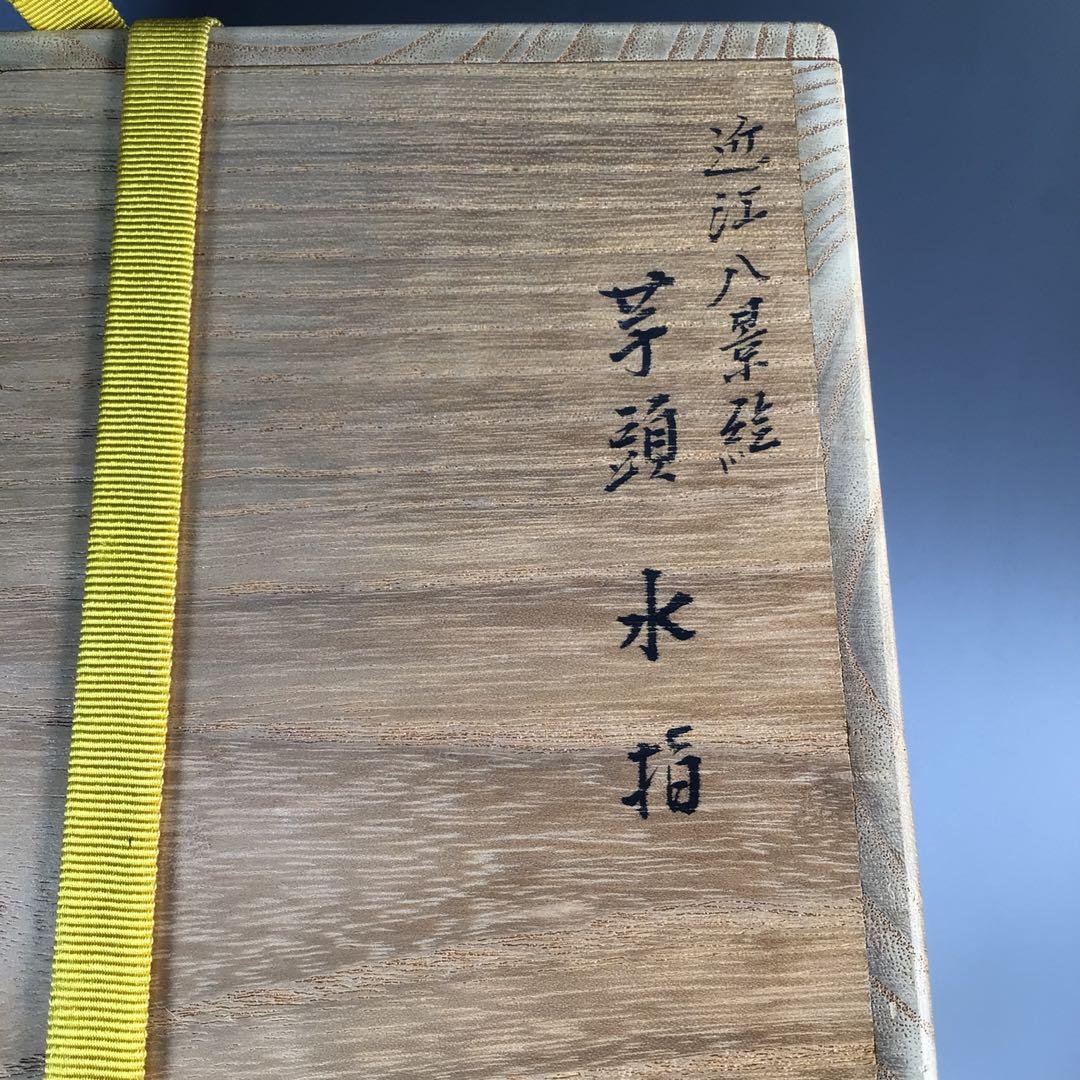 近江八景絵
芋頭水指